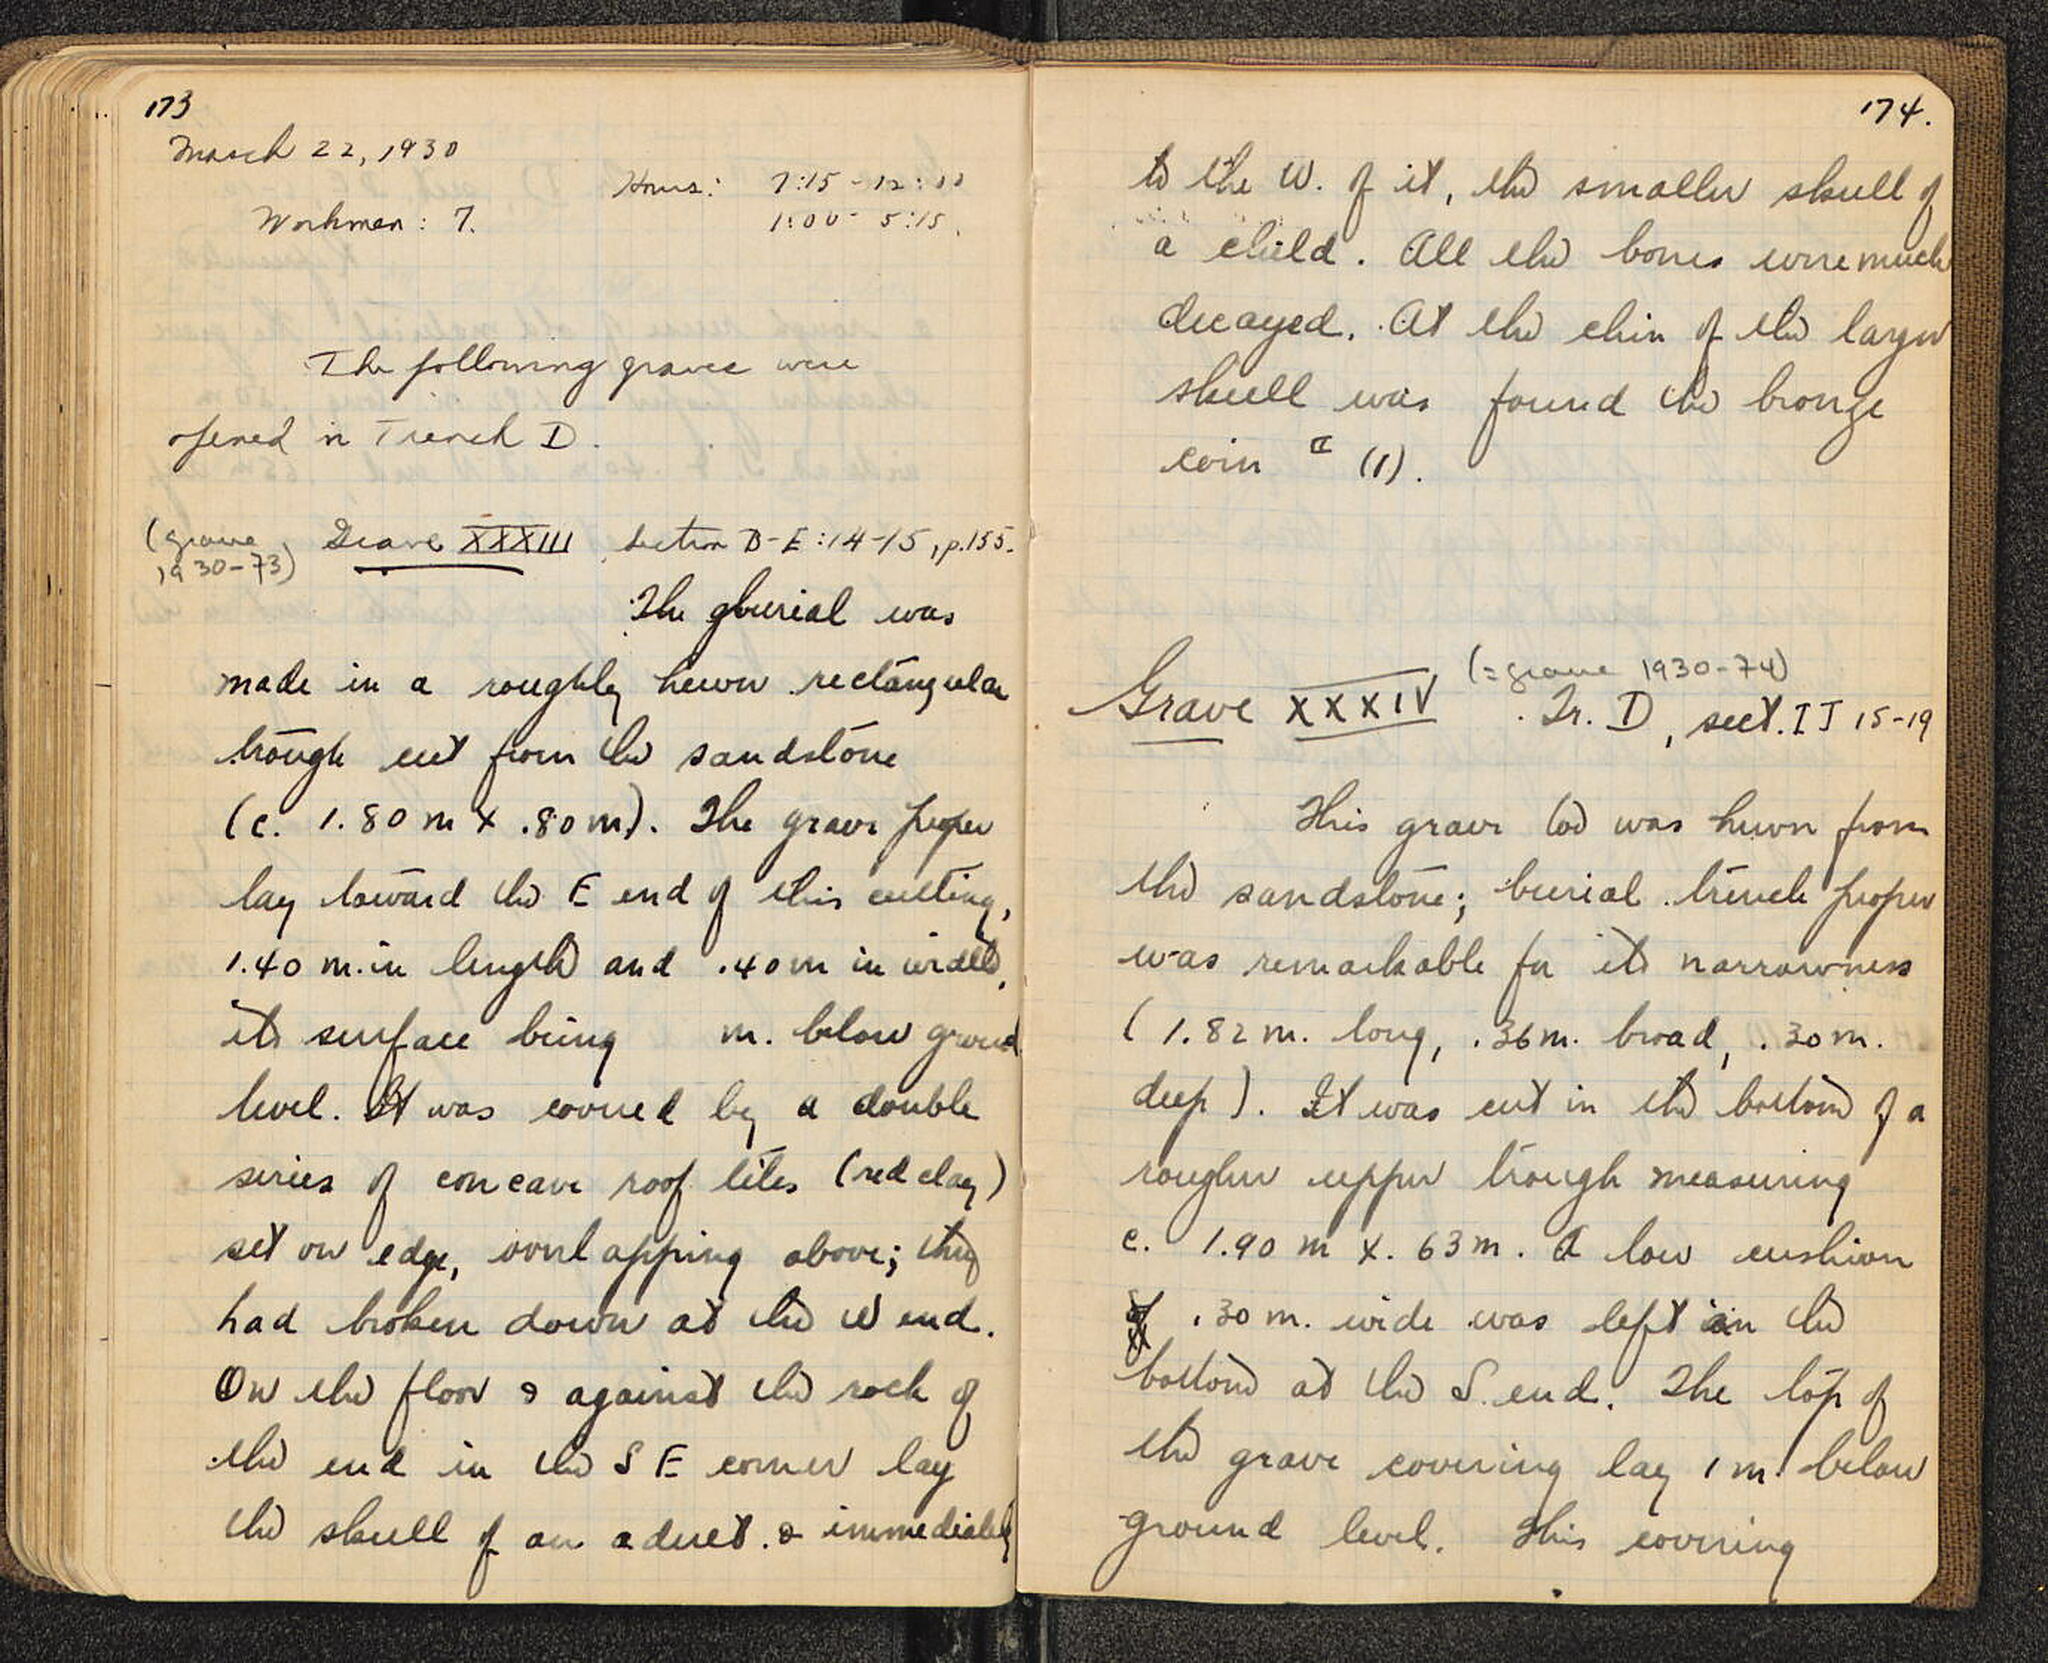 173
March 22, 1930
Hours: 7:15 - 12:00
Workmen: 7. 1:00 - 5:15.
The following graves were
opened in Trench D.
(grave 1930-73) Grave XXXIII Section D-E:14-15, p.155.
The burial was
made in a roughly hewn rectangular
trough cut from the sandstone
(c. 1.80 m x .80 m). The grave proper
lay toward the E end of this cutting,
1.40 m. in length and .40 m in width,
its surface being m. below ground
level. It was covered by a double
series of concave roof tiles (red clay)
set on edge, overlapping above; they
had broken down at the W end.
On the floor & against the rock of
the end in the SE corner lay
the skull of an adult. & immediately
174.
to the W. of it, the smaller skull of
a child. All the bones were much
decayed. At the chin of the larger
skull was found the bronze
coin (1).
(= grave 1930-74)
Grave XXXIV Tr. D, sect. IJ 15-19
This grave too was hewn from
the sandstone; burial trench proper
was remarkable for its narrowness
(1.82 m. long, .36 m. broad, .30 m.
deep). It was cut in the bottom of a
rougher upper trough measuring
c. 1.90 m x .63 m. A low cushion
.30 m. wide was left in the
bottom at the S. end. The top of
the grave covering lay 1 m. below
ground level. This covering